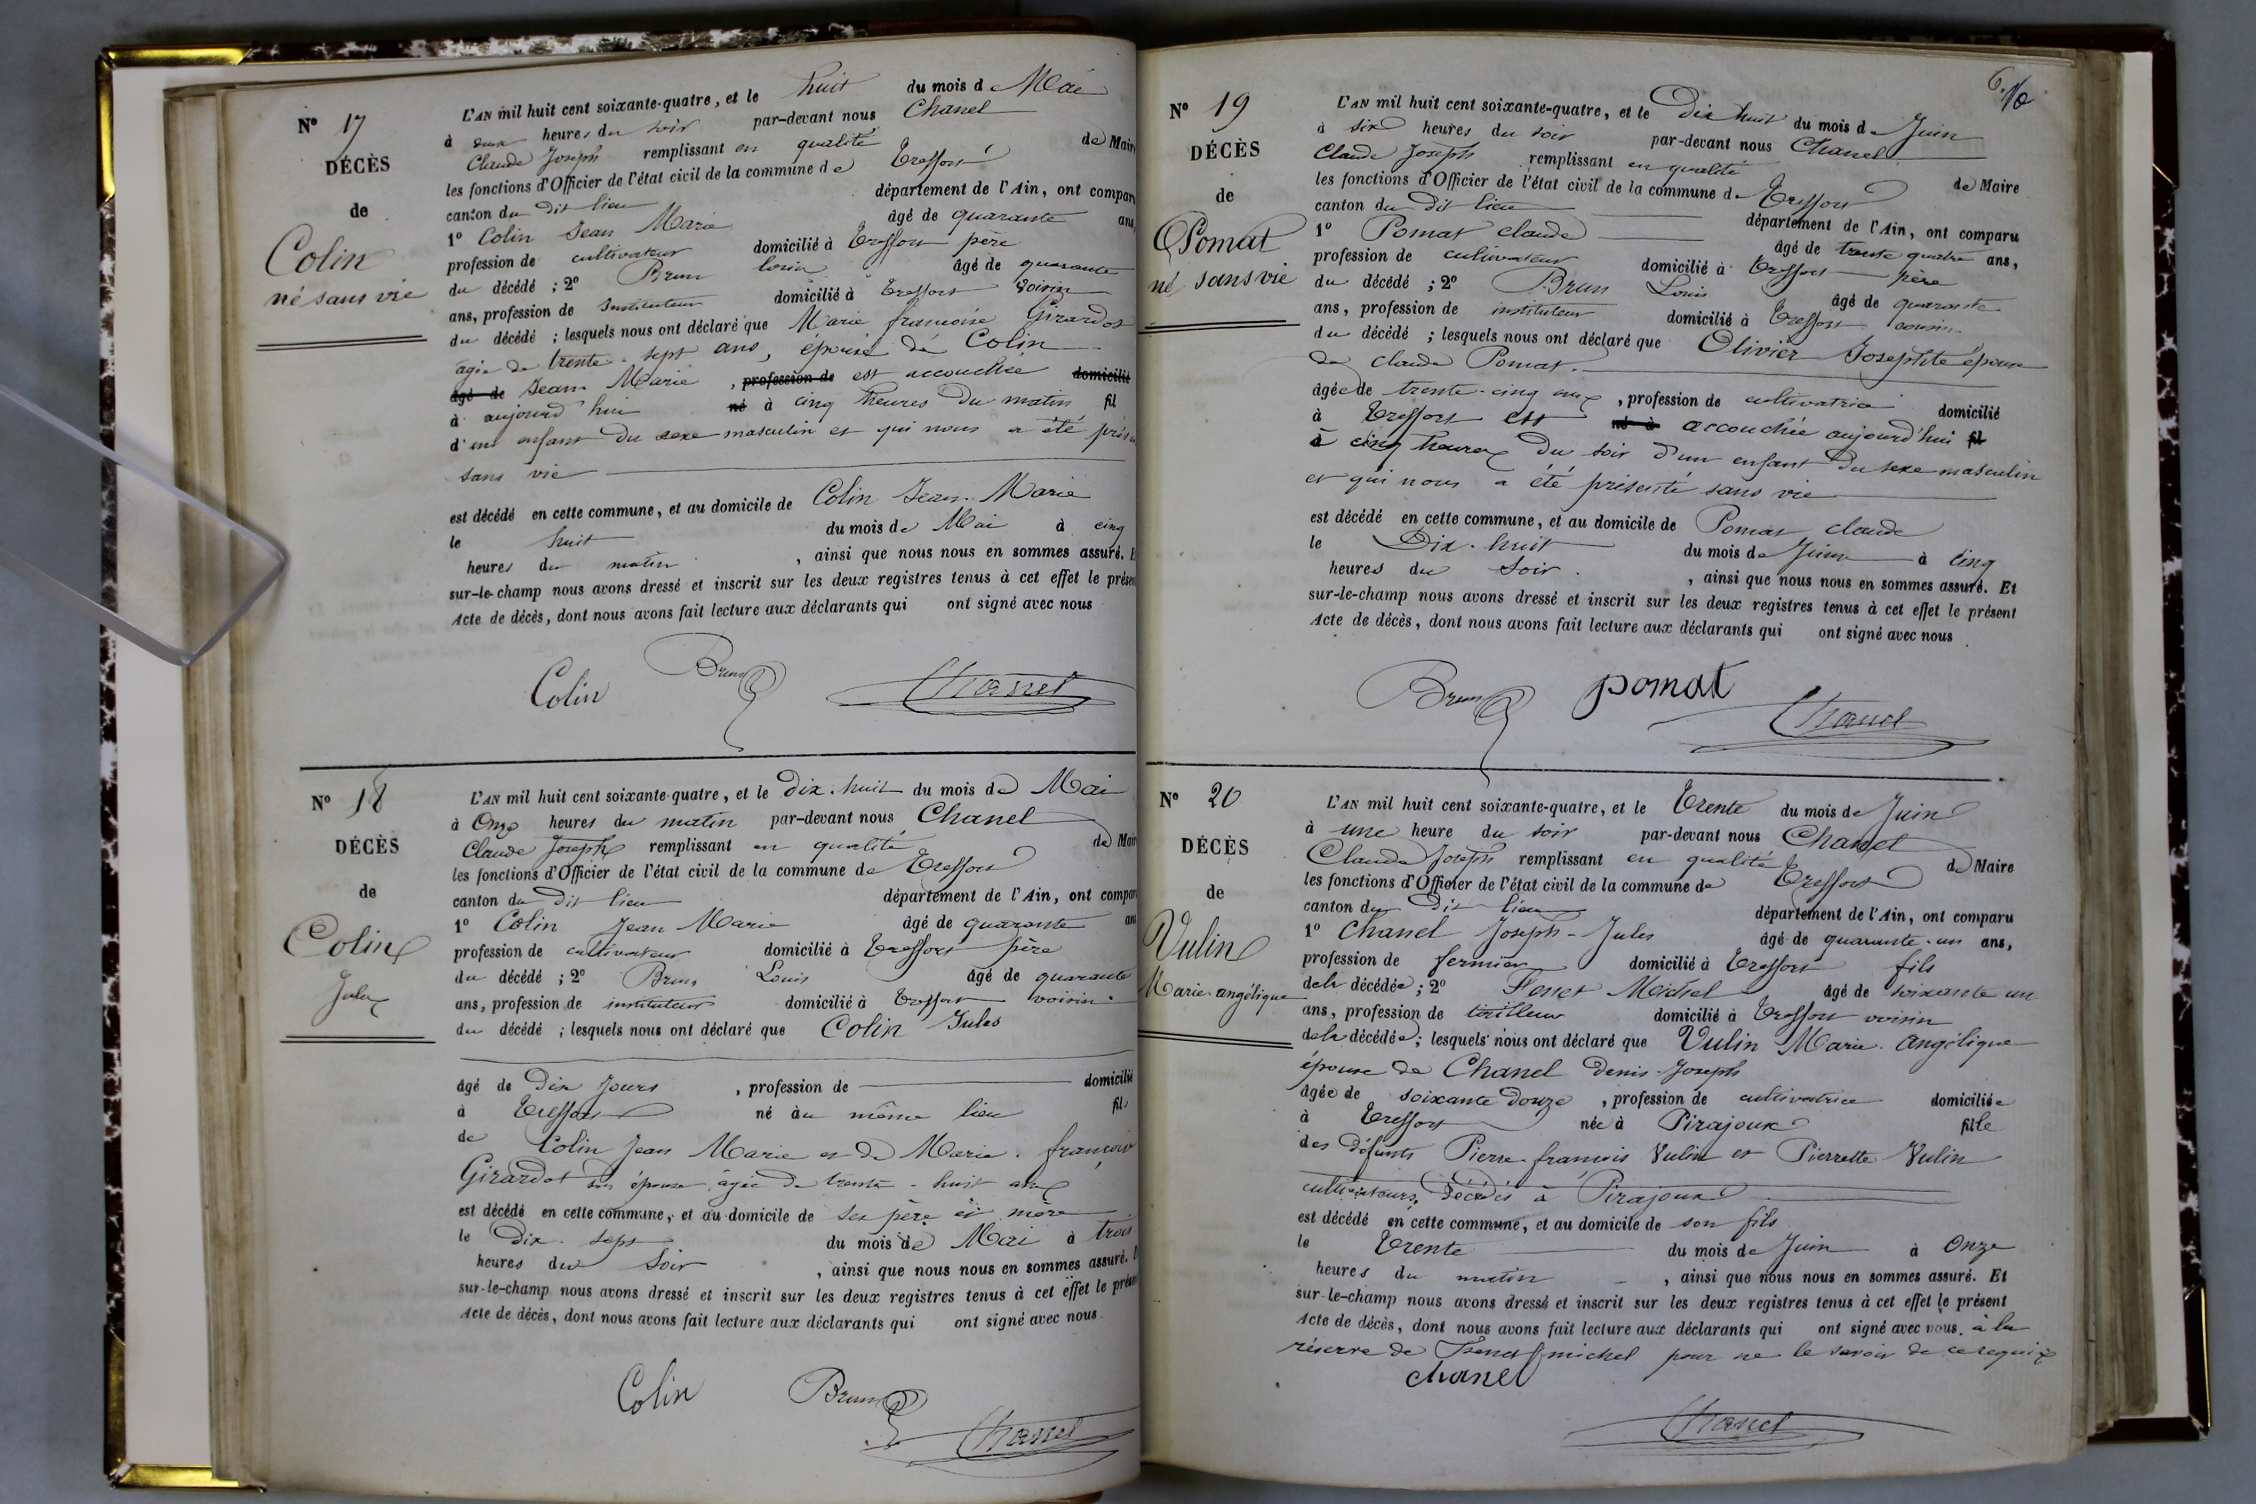 N° 17
DÉCÈS
de
Colin
né sans vie
L'AN mil huit cent soixante-quatre, et le huit du mois de Mai
à deux heures du soir par-devant nous Chanel
Claude Joseph remplissant en qualité de Maire
les fonctions d'Officier de l'état civil de la commune de Treffort
canton du dit lieu département de l'Ain, ont compar
1° Colin Jean Marie âgé de quarante ans,
profession de cultivateur domicilié à Treffort père
du décédé ; 2° Brun Louis âgé de quarante
ans, profession de Instituteur domicilié à Treffort voisin
du décédé ; lesquels nous ont déclaré que Marie françoise Girardot
agée de trente-sept ans, épouse de Colin
âgé de Jean Marie , profession de est accouchée domicilié
à aujourd'hui né à cinq heures du matin fil
d'un enfant du sexe masculin et qui nous a été présen
sans vie
est décédé en cette commune, et au domicile de Colin Jean-Marie
le huit du mois de Mai à cinq
heures du matin , ainsi que nous nous en sommes assuré. E
sur-le-champ nous avons dressé et inscrit sur les deux registres tenus à cet effet le présen
Acte de décès, dont nous avons fait lecture aux déclarants qui ont signé avec nous
Colin Brun Chanel
N° 18
DÉCÈS
de
Colin
Jules
L'AN mil huit cent soixante-quatre, et le dix-huit du mois de Mai
à Onze heures du matin par-devant nous Chanel
Claude Joseph remplissant en qualité de Mair
les fonctions d'Officier de l'état civil de la commune de Treffort
canton du Dit lieu département de l'Ain, ont compar
1° Colin Jean Marie âgé de quarante ans
profession de cultivateur domicilié à Treffort père
du décédé ; 2° Brun Louis âgé de quarante
ans, profession de instituteur domicilié à Treffort voisin
du décédé ; lesquels nous ont déclaré que Colin Jules
âgé de Dix Jours , profession de domicilié
à Treffort né au même lieu fils
de Colin Jean Marie et de Marie françoise
Girardot son épouse, agée de trente-huit ans
est décédé en cette commune, et au domicile de ses père et mère
le Dix-sept du mois de Mai à trois
heures du Soir , ainsi que nous nous en sommes assuré.
sur-le-champ nous avons dressé et inscrit sur les deux registres tenus à cet effet le présen
Acte de décès, dont nous avons fait lecture aux déclarants qui ont signé avec nous.
Colin Brun
Chanel
N° 19
DÉCÈS
de
Pomat
né sans vie
L'AN mil huit cent soixante-quatre, et le Dix huit du mois de Juin
à six heures du soir par-devant nous Chanel
Claude Joseph remplissant en qualité de Maire
les fonctions d'Officier de l'état civil de la commune de Treffort
canton du Dit lieu département de l'Ain, ont comparu
1° Pomat claude âgé de trente quatre ans,
profession de cultivateur domicilié à Treffort père
du décédé ; 2° Brun Louis âgé de quarante
ans, profession de instituteur domicilié à Treffort cousin
du décédé ; lesquels nous ont déclaré que Olivier Josephte épouse
de claude Pomat.
âgée de trente-cinq ans , profession de cultivatrice domicilié
à Treffort est né à accouchée aujourd'hui fil
à cinq heures du soir d'un enfant du sexe masculin
et qui nous a été présenté sans vie
est décédé en cette commune, et au domicile de Pomat claude
le Dix-huit du mois de Juin à cinq
heures du Soir. , ainsi que nous nous en sommes assuré. Et
sur-le-champ nous avons dressé et inscrit sur les deux registres tenus à cet effet le présent
Acte de décès, dont nous avons fait lecture aux déclarants qui ont signé avec nous
Brun pomat Chanel
N° 20
DÉCÈS
de
Vulin
Marie-angélique
L'AN mil huit cent soixante-quatre, et le Trente du mois de Juin
à une heure du soir par-devant nous Chanel
Claude Joseph remplissant en qualité de Maire
les fonctions d'Officier de l'état civil de la commune de Treffort
canton du Dit lieu département de l'Ain, ont comparu
1° Chanel Joseph-Jules âgé de quarante-un ans,
profession de fermier domicilié à Treffort fils
de la décédée ; 2° Michel âgé de soixante un
ans, profession de tailleur domicilié à Treffort voisin
de la décédée ; lesquels nous ont déclaré que Vulin Marie-Angélique
épouse de Chanel Denis-Joseph
âgée de soixante Douze , profession de cultivatrice domiciliée
à Treffort née à Pirajoux fille
des défunts Pierre-françois Vulin et Pierrette Vulin
cultivateurs, Décédés à Pirajoux
est décédé en cette commune, et au domicile de son fils
le Trente du mois de Juin à Onze
heures du matin , ainsi que nous nous en sommes assuré. Et
sur-le-champ nous avons dressé et inscrit sur les deux registres tenus à cet effet le présent
Acte de décès, dont nous avons fait lecture aux déclarants qui ont signé avec nous. à la
réserve de michel pour ne le savoir de ce requis
chanel
Chanel